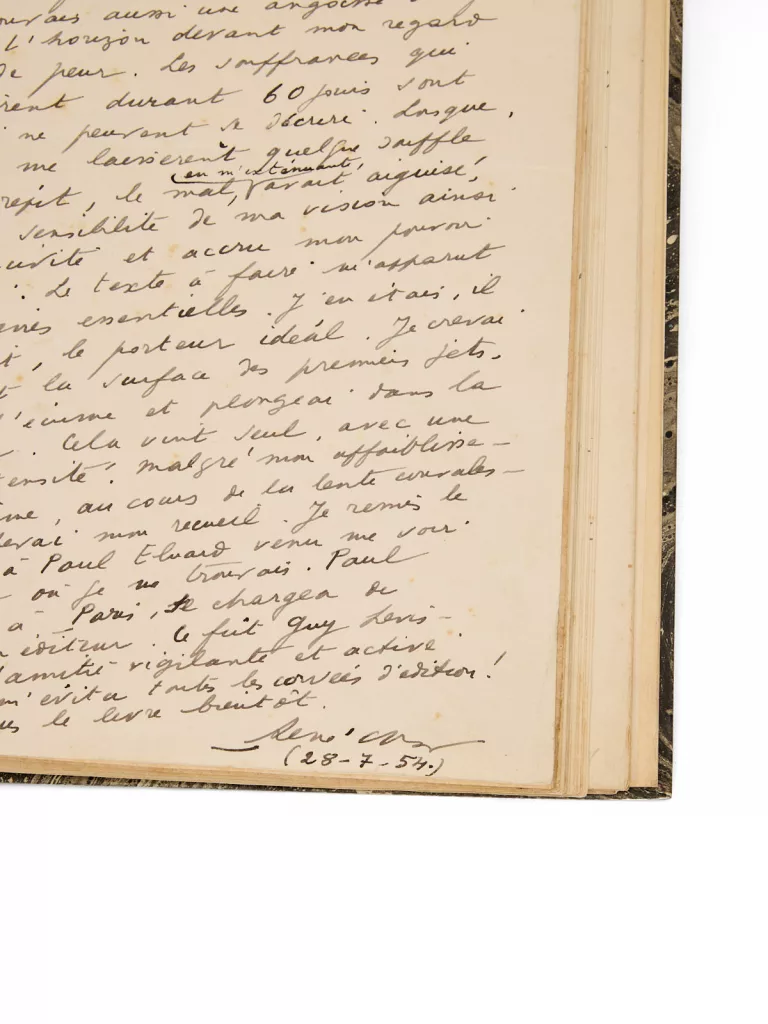 aussi une angoisse
L'horizon devant mon regard
de peur. Les souffrances qui
durant 60 jours sont
ne peuvent se décrire. Lorsque,
me laissèrent quelque souffle
en m'exténuant,
répit, le mal, avait aiguisé,
sensibilité de ma vision ainsi
et accru mon pouvoir
: Le texte à faire m'apparut
essentielles. J'en étais, il
, le porteur idéal. Je crevai
la surface des premiers jets,
l'écume et plongeai dans la
. Cela vint seul, avec une
malgré mon affaiblisse-
, au cours de la lente convales-
mon recueil. Je remis le
à Paul Eluard venu me voir
où je me trouvais. Paul
à Paris, se chargea de
éditeur. Ce fut Guy Levis-
l'amitié vigilante et active
m'évita toutes les corvées d'édition!
le livre bientôt.
René Char
(28-7-54.)